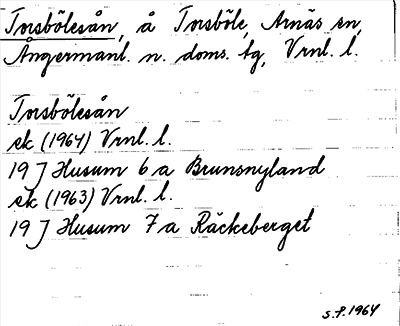 Torsbölesån, å Torsböle, Arnäs sn,
Ångermanl. n. doms. tg, Vrnl. l.
Torsbölesån
ek (1964) Vrnl. l.
19 J Husum 6 a Brunsnyland
ek (1963) Vrnl. l.
19 J Husum 7 a Räckeberget
S.P. 1964